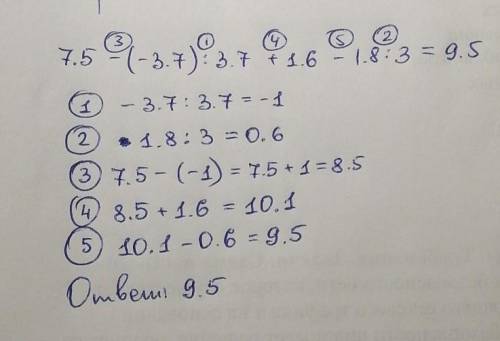 7.5 ③ - (-3.7) ① : 3.7 ④ + 1.6 ⑤ - 1.8 ② : 3 = 9.5
① - 3.7 : 3.7 = -1
② 1.8 : 3 = 0.6
③ 7.5 - (-1) = 7.5 + 1 = 8.5
④ 8.5 + 1.6 = 10.1
⑤ 10.1 - 0.6 = 9.5
Ответ: 9.5